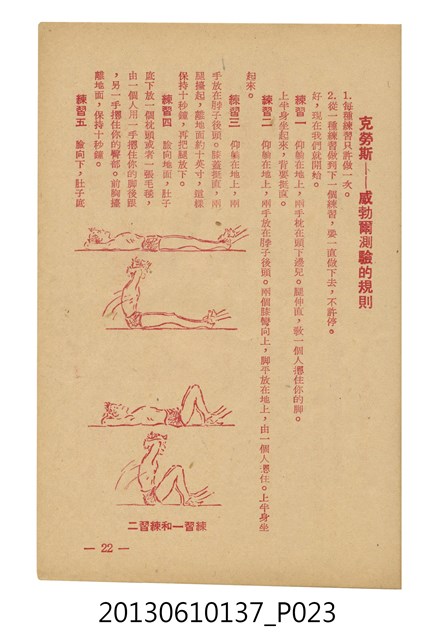 克勞斯——威勃爾測驗的規則
1. 每種練習只許做一次。
2. 從一種練習做到下一個練習，要一直做下去，不許停。
好，現在我們就開始。
練習一　仰躺在地上，兩手枕在頭下邊兒。腿伸直，教一個人摁住你的脚。
上半身坐起來，背要挺直。
練習二　仰躺在地上，兩手放在脖子後頭。兩個膝彎向上，脚平放在地上，由一個人摁住。上半身坐
起來。
練習三　仰躺在地上，兩
手放在脖子後頭。膝蓋挺直，兩
腿擡起，離地面約十英寸，這樣
保持十秒鐘，再把腿放下。
練習四　臉向地面，肚子
底下放一個枕頭或者一張毛毯，
由一個人用一手摁住你的脚後跟
，另一手摁住你的臀部。前胸擡
離地面，保持十秒鐘。
練習五　臉向下，肚子底
二習練和一習練
— 22 —
20130610137_P023